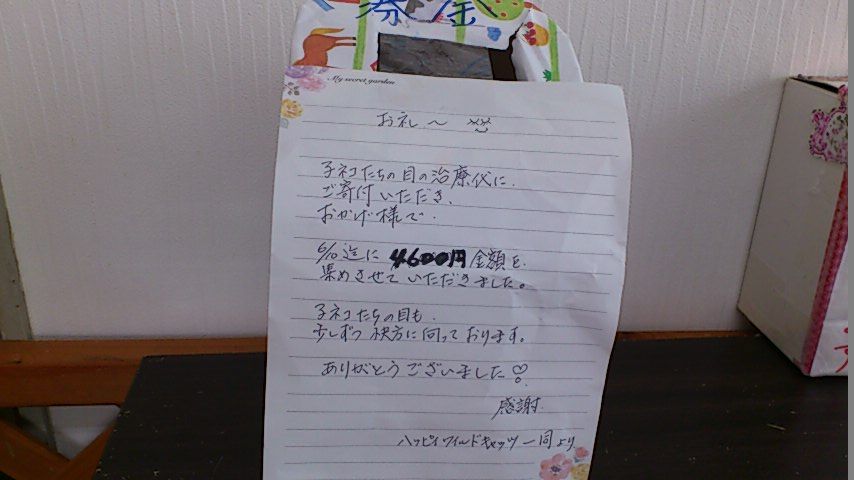 募金
My secret garden
お礼～
子ネコたちの目の治療代に、
ご寄付いただき、
おかげ様で、
6/10迄に 4600円 金額を、
集めさせていただきました。
子ネコたちの目も、
少しずつ 快方に向っております。
ありがとうございました♡
感謝
ハッピィワイルドキャッツ 一同より